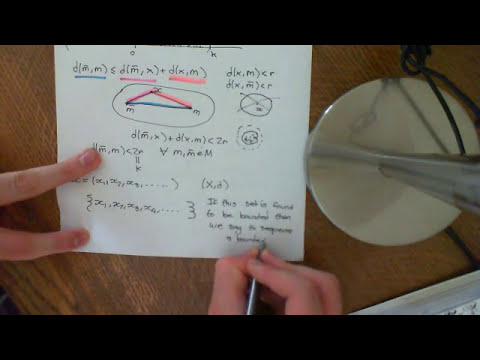 d(m̄,m) ≤ d(m̄,x) + d(x,m) d(x,m)<r
d(x,m̄)<r
x
m̄ m
x
d(m̄,x)+d(x,m)<2r
d(m̄,m)<2r ∀ m,m̄∈M
k
= (x₁,x₂,x₃,.....) (X,d)
{x₁,x₂,x₃,x₄,.....} If this set is found
to be bounded then
we say the sequence
is bounded